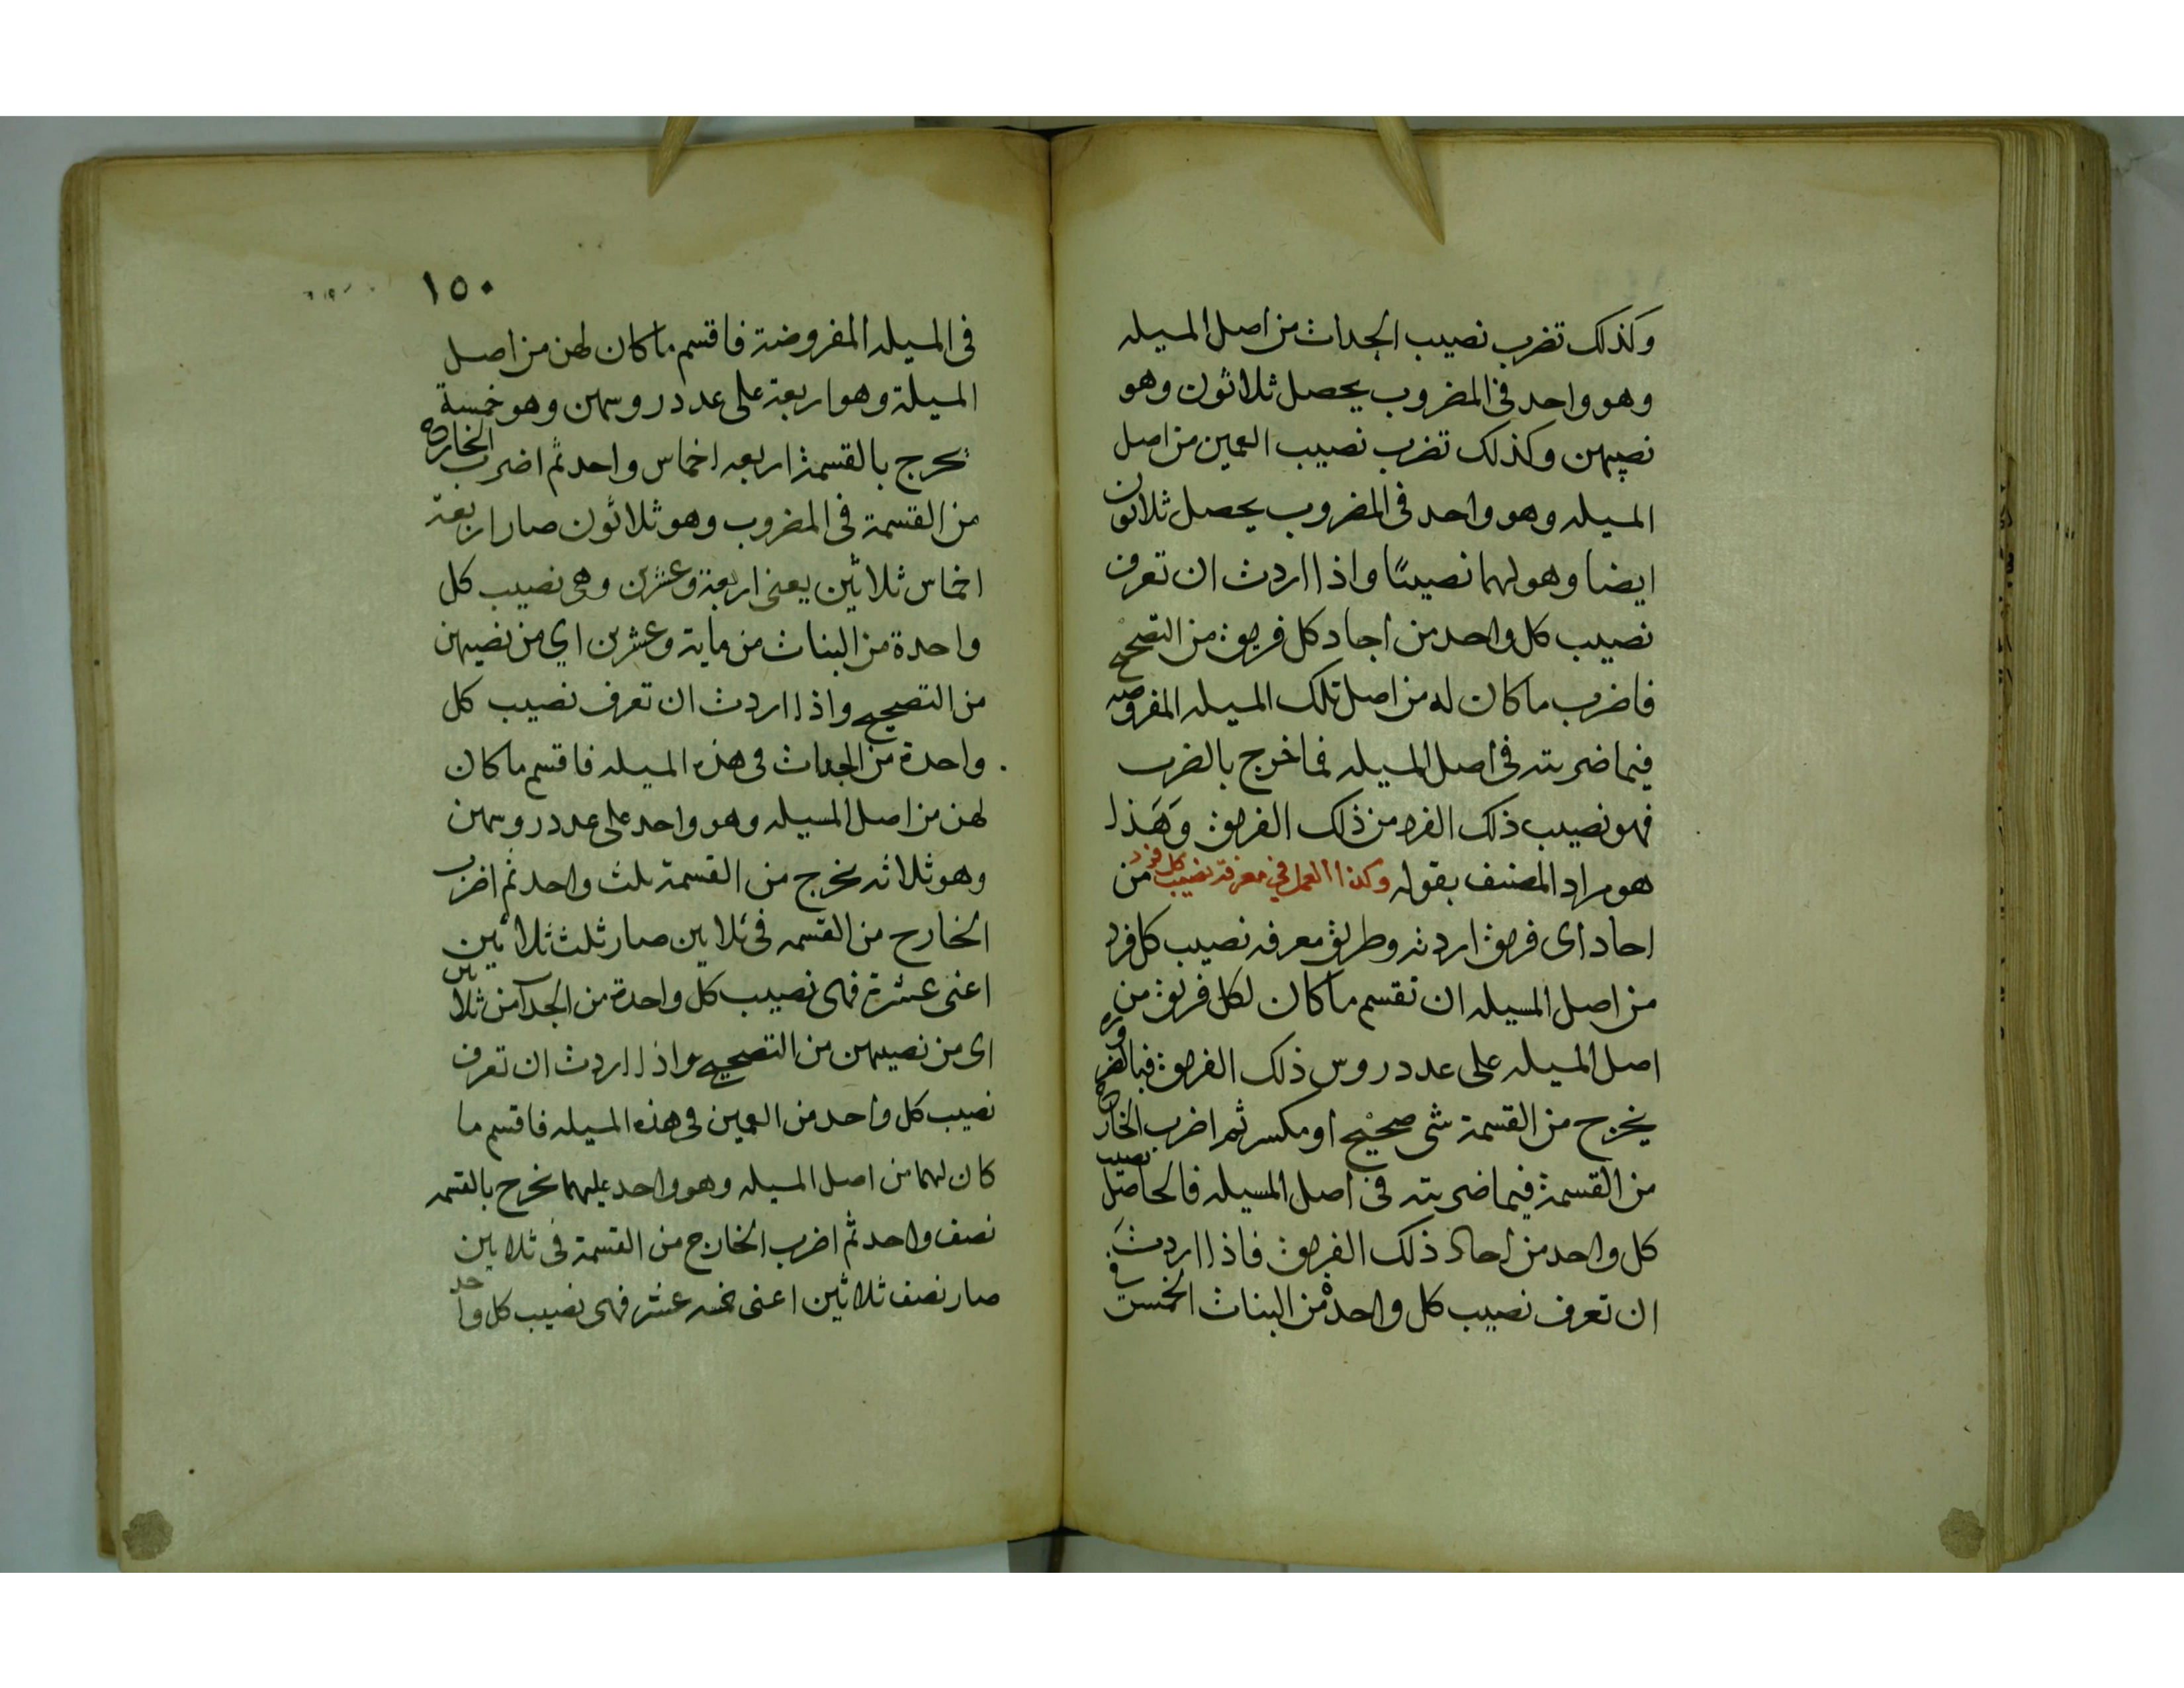 وكذلك تضرب نصيب الجدات من اصل المسيله
وهو واحد فى المضروب يحصل ثلاثون وهو
نصيبهن وكذلك تضرب نصيب العمين من اصل
المسيله وهو واحد فى المضروب يحصل ثلاثون
ايضا وهو لهما نصيبًا واذا اردت ان تعرف
نصيب كل واحد من احاد كل فريق من التصحيح
فاضرب ما كان له من اصل تلك المسيله المفروضه
فيما ضربته فى اصل المسيله فما خرج بالضرب
فهو نصيب ذلك الفرد من ذلك الفريق وهذا
هو مراد المصنف بقوله وكذا العمل في معرفة نصيب كل فرد من
احاد اى فريق اردته وطريق معرفه نصيب كل فرد
من اصل المسيله ان تقسم ما كان لكل فريق من
اصل المسيله على عدد روس ذلك الفريق فبالضروره
يخرج من القسمة شى صحيح او مكسر ثم اضرب الخارج
من القسمة فيما ضربته فى اصل المسيله فالحاصل نصيب
كل واحد من احاد ذلك الفريق فاذا اردت
ان تعرف نصيب كل واحدة من البنات الخمسة فى
١٥٠
فى المسيله المفروضة فاقسم ما كان لهن من اصل
المسيلة وهو اربعة على عدد روسهن وهو خمسة
يخرج بالقسمة اربعه اخماس واحد ثم اضرب الخارج
من القسمة فى المضروب وهو ثلاثون صار اربعة
اخماس ثلاثين يعنى اربعة وعشرين وهى نصيب كل
واحدة من البنات من ماية وعشرين اي من نصيبهن
من التصحيح واذا اردت ان تعرف نصيب كل
واحدة من الجدات فى هذه المسيله فاقسم ما كان
لهن من اصل المسيله وهو واحد على عدد روسهن
وهو ثلاثه يخرج من القسمة ثلث واحد ثم اضرب
الخارج من القسمه فى ثلاثين صار ثلث ثلاثين
اعنى عشرة فهى نصيب كل واحدة من الجدات من ثلاثين
اى من نصيبهن من التصحيح واذا اردت ان تعرف
نصيب كل واحد من العمين فى هذه المسيله فاقسم ما
كان لهما من اصل المسيله وهو واحد عليهما يخرج بالقسمه
نصف واحد ثم اضرب الخارج من القسمة فى ثلاثين
صار نصف ثلاثين اعنى خمسه عشر فهى نصيب كل واحد